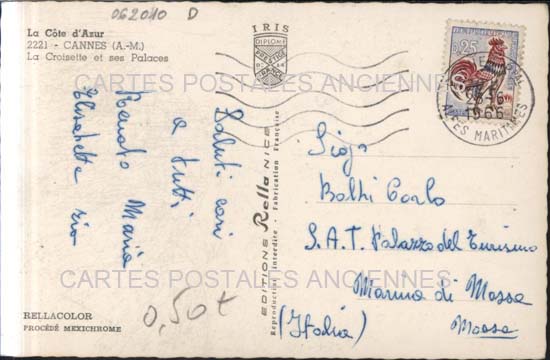 062010 D
La Côte d'Azur
2221 - CANNES (A.-M.)
La Croisette et ses Palaces
IRIS
DIPLOME
PRESTIGE
FRANCE
0,25
1966
ALPES MARITIMES
CARTES POSTALES ANCIENNES
Saluti cari
a tutti
Renato Maria
Elisabetta
EDITIONS Rella NICE
Reproduction interdite - Fabrication Française
Sig.
Balhi Carlo
S.A.T. Palazzo del Turismo
Marina di Massa
Massa
(Italia)
CARTES POSTALES ANCIENNES
0,50 €
RELLACOLOR
PROCÉDÉ MEXICHROME